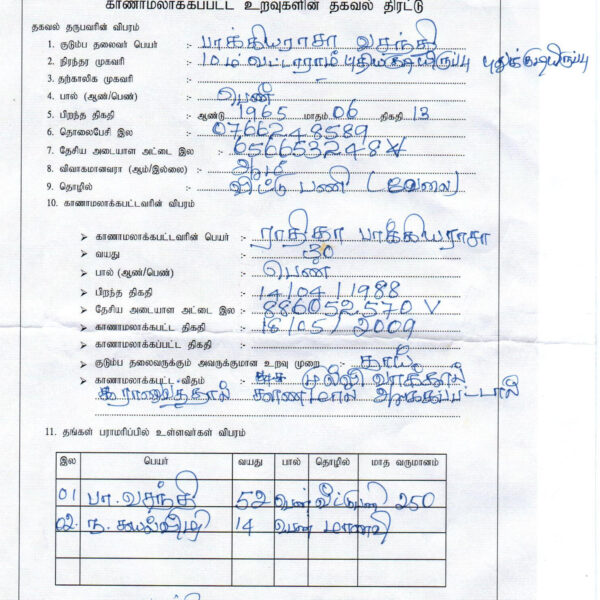 காணாமலாக்கப்பட்ட உறவுகளின் தகவல் திரட்டு
தகவல் தருபவரின் விபரம்
1. குடும்ப தலைவர் பெயர் :- பாக்கியராசா வசந்தி
2. நிரந்தர முகவரி :- 10ம் வட்டாரம் புதுக்குடியிருப்பு
3. தற்காலிக முகவரி :-
4. பால் (ஆண்/பெண்) :- பெண்
5. பிறந்த திகதி :- ஆண்டு 1965 மாதம் 06 திகதி 13
6. தொலைபேசி இல :- 0766248589
7. தேசிய அடையாள அட்டை இல :- 656653248V
8. விவாகமானவரா (ஆம்/இல்லை) :- ஆம்
9. தொழில் :- வீட்டு பணி (வேலை)
10. காணாமலாக்கப்பட்டவரின் விபரம்
➢ காணாமலாக்கப்பட்டவரின் பெயர் :- ராதிகா பாக்கியராசா
➢ வயது :- 30
➢ பால் (ஆண்/பெண்) :- பெண்
➢ பிறந்த திகதி :- 14/04/1988
➢ தேசிய அடையாள அட்டை இல :- 886052570V
➢ காணாமலாக்கபட்ட திகதி :- 18/05/2009
➢ காணாமலாக்கப்பட்ட திகதி :-
➢ குடும்ப தலைவருக்கும் அவருக்குமான உறவு முறை :- தாய்
➢ காணாமலாக்கபட்ட விதம் :- முள்ளி வாய்க்கால்
இராணுவத்தால் காணாமல் ஆக்கப்பட்டார்
11. தங்கள் பராமரிப்பில் உள்ளவர்கள் விபரம்
இல பெயர் வயது பால் தொழில் மாத வருமானம்
01 பா. வசந்தி 52 பெண் வீட்டுபணி 250
02. ந. கயல்விழி 14 பெண் மாணவி